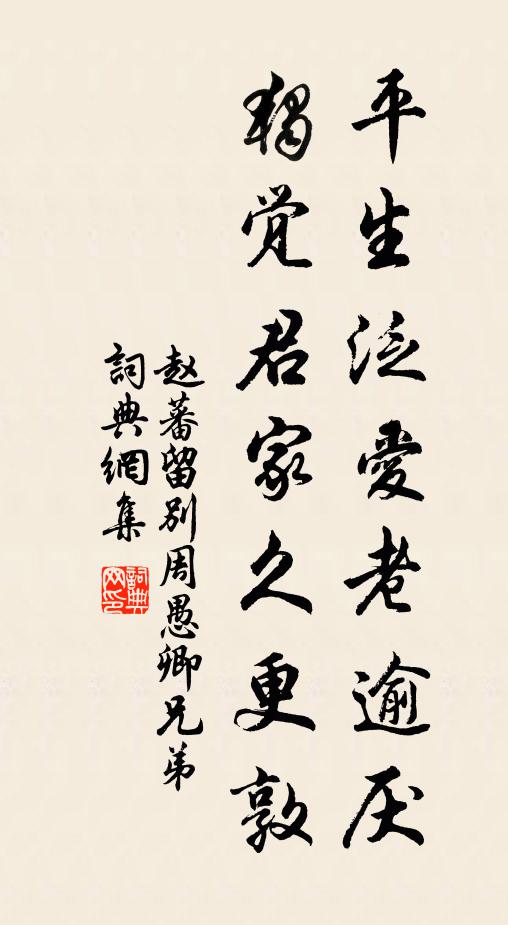 平生泛愛老逾厌
独覚君家久更敦
赵蕃留别周愚卿兄弟
詞典網集
詞典
网印